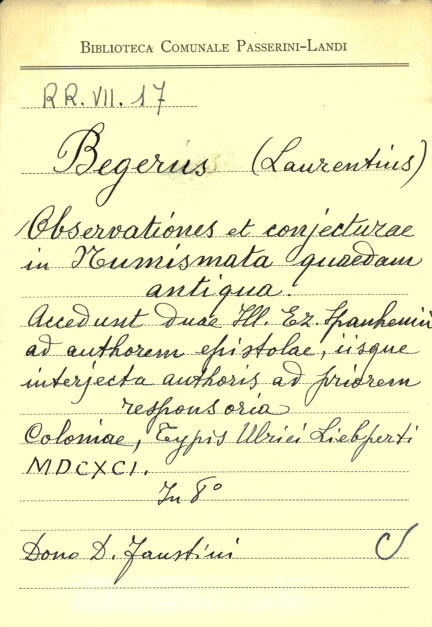 BIBLIOTECA COMUNALE PASSERINI-LANDI
RR. VII. 17
Begerus (Laurentius)
Observationes et conjecturae
in Numismata quaedam
antiqua.
Accedunt duae Ill. Ez. Spanhemii
ad authorem epistolae, iisque
interjecta authoris ad priorem
responsoria
Coloniae, Typis Ulrici Liebperti
MDCXCI.
In 8°
Dono D. Faustini